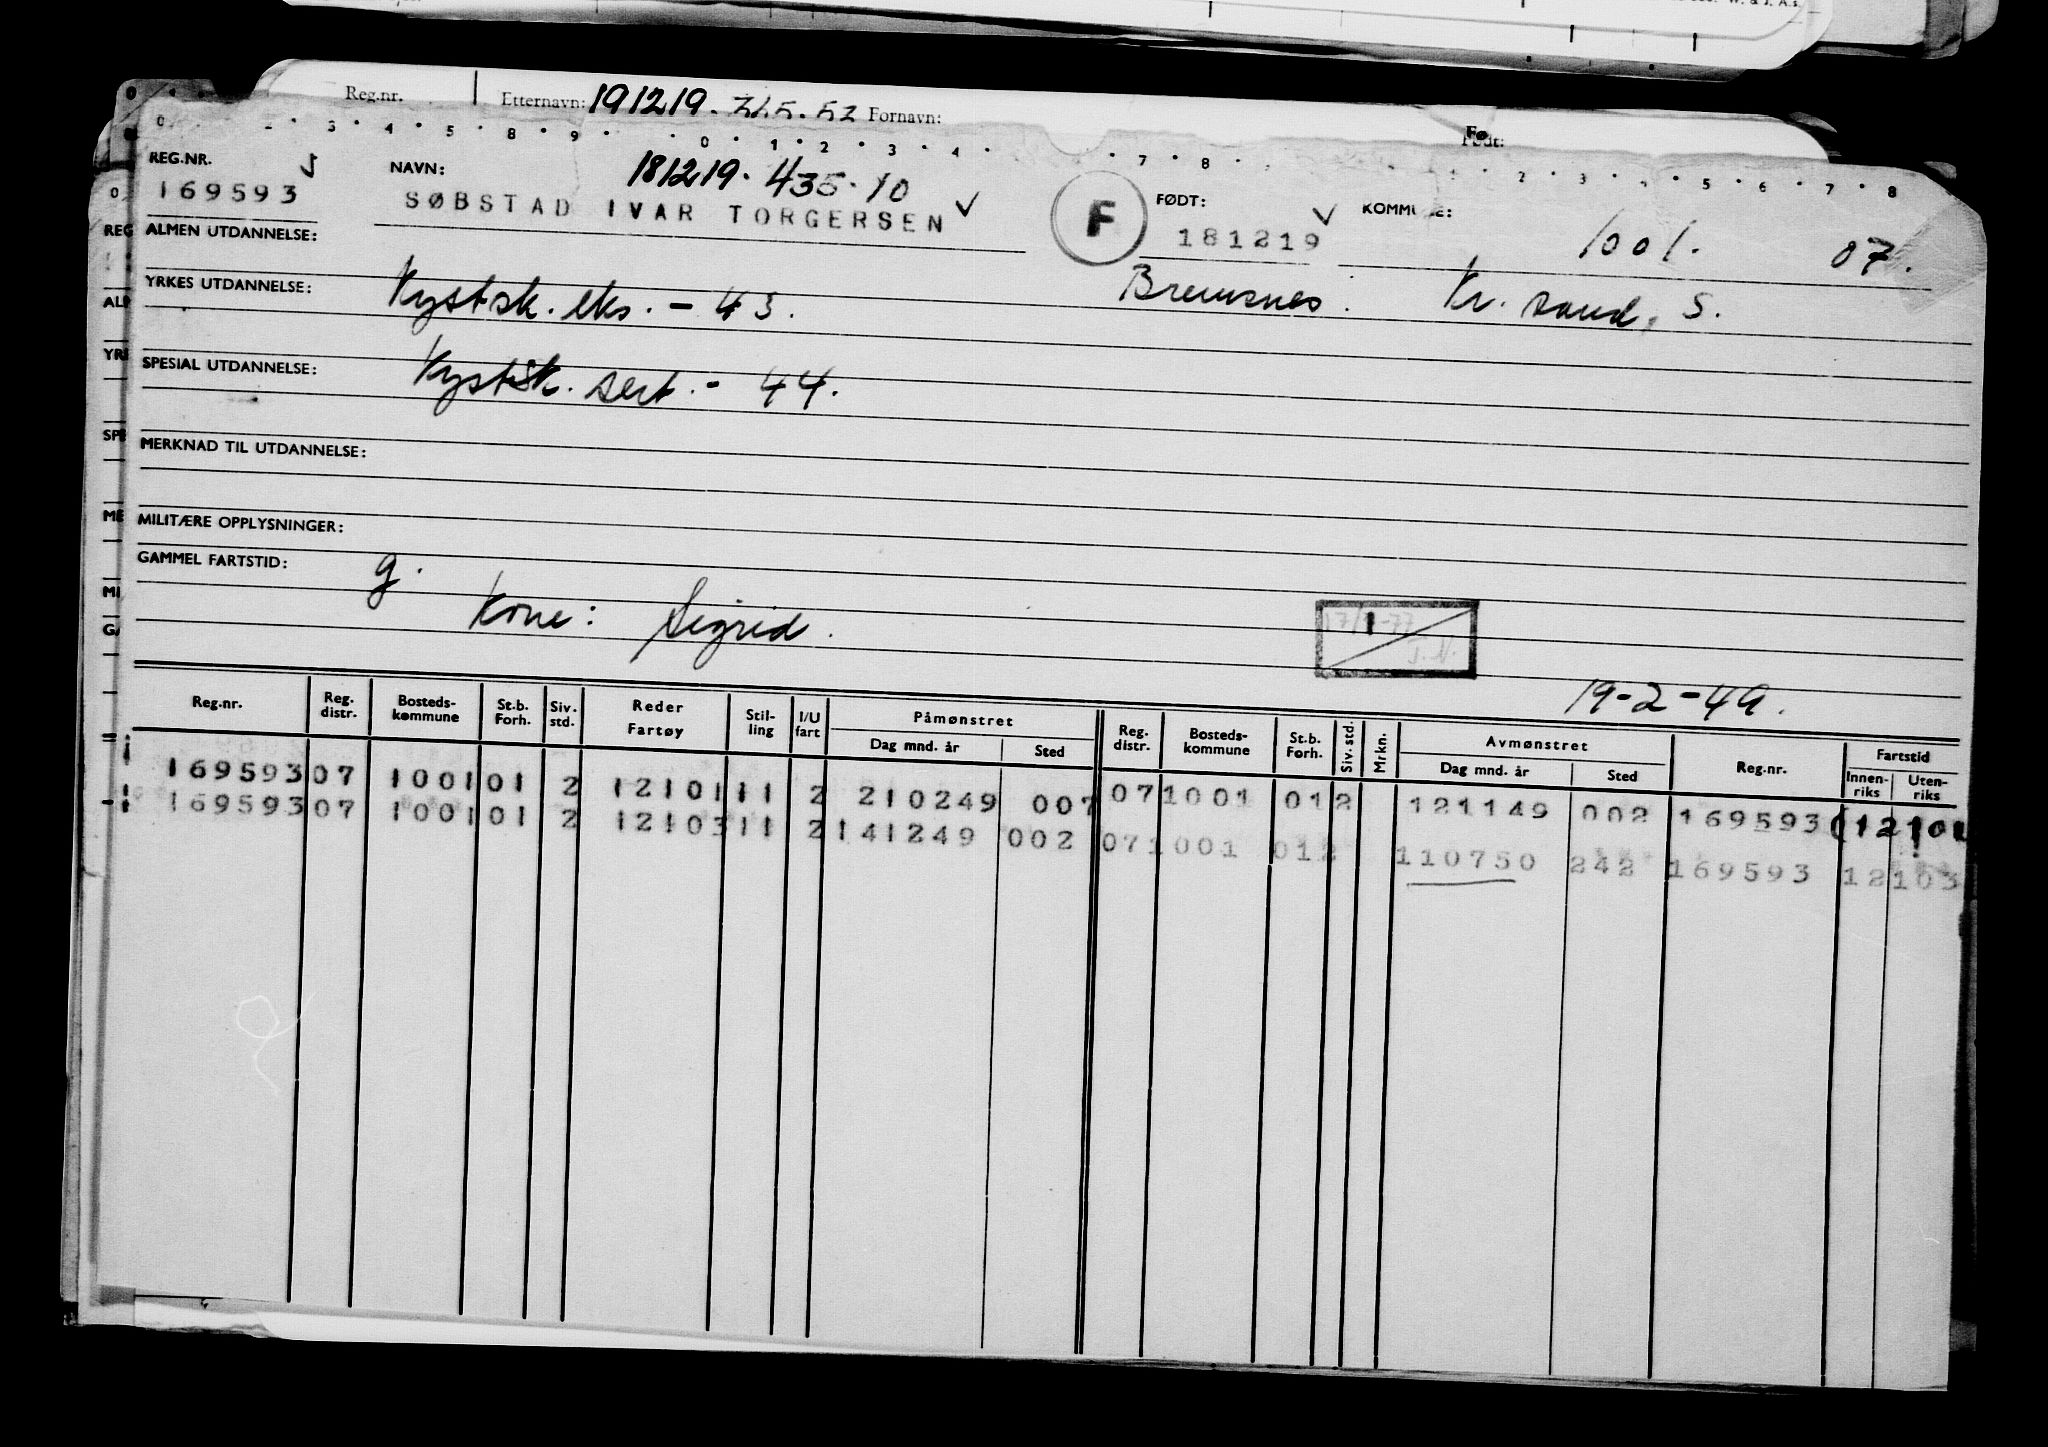 W. & T. A.s.
Reg.nr. Etternavn: 191219. Fornavn: Født:
REG.NR. NAVN: 181219. 435.10 FØDT: KOMMUNE:
169593 SØBSTAD IVAR TORGERSEN F 181219 1001. 07.
ALMEN UTDANNELSE:
YRKES UTDANNELSE: Kystsk. eks. - 43. Bremsnes. Kr. sand. S.
SPESIAL UTDANNELSE: Kystsk. sert. - 44.
MERKNAD TIL UTDANNELSE:
MILITÆRE OPPLYSNINGER:
GAMMEL FARTSTID: g.
Kone: Sigrid.
19-2-49.
Reg.nr. Reg. distr. Bosteds-kommune St.b. Forh. Siv. std. Reder Fartøy Stil-ling I/U fart Påmønstret Dag mnd. år Sted Reg. distr. Bosteds-kommune St.b. Forh. Siv. std. Mrkn. Avmønstret Dag mnd. år Sted Reg.nr. Fartstid Innen-riks Uten-riks
169593 07 1001 01 2 12101 11 2 210249 007 07 1001 01 2 121149 002 169593 12101
169593 07 1001 01 2 12103 11 2 141249 002 07 1001 01 2 110750 242 169593 12103